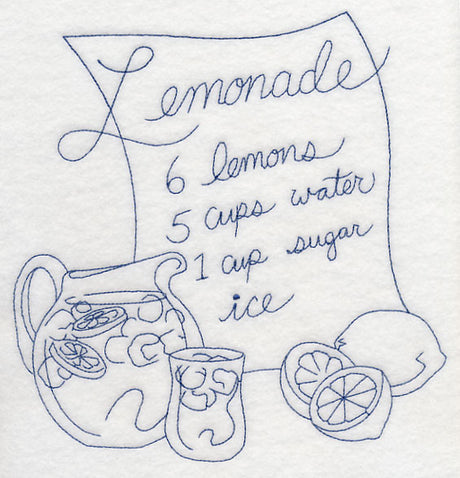 Lemonade
6 lemons
5 cups water
1 cup sugar
ice